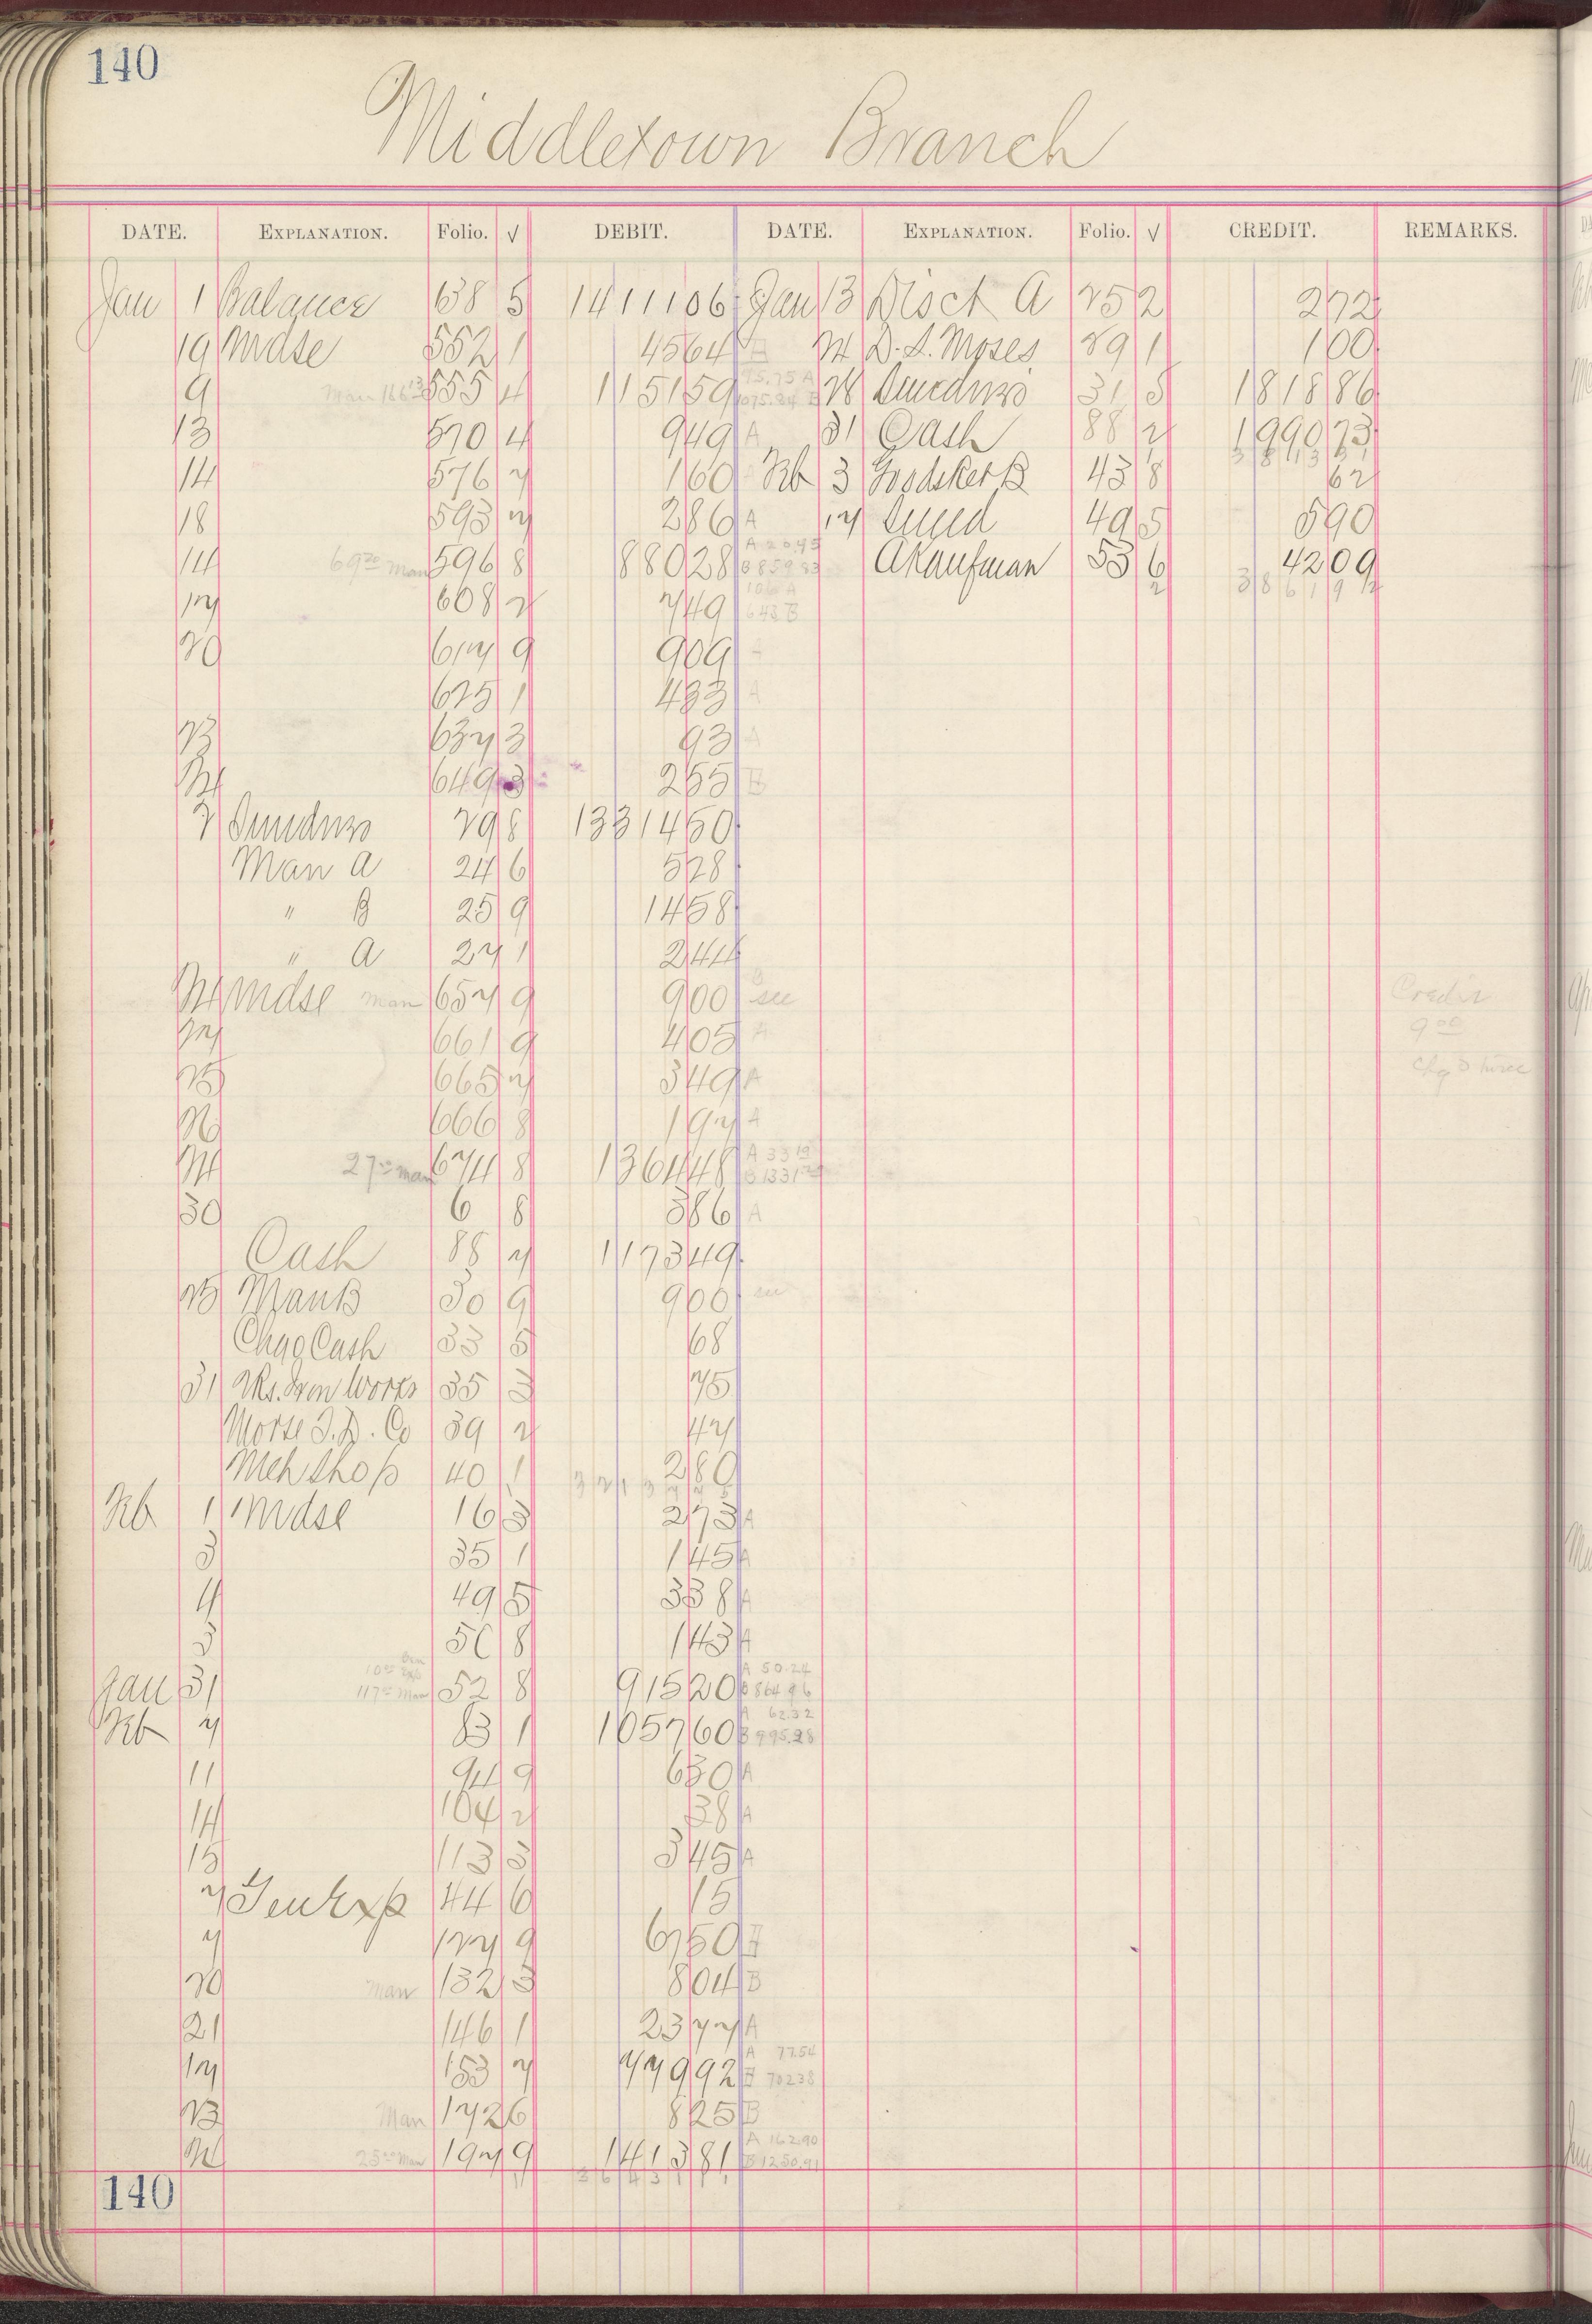 140
Middletown Branch
DATE. EXPLANATION. Folio. √ DEBIT. DATE. EXPLANATION. Folio. √ CREDIT. REMARKS.
Jan 1 Balance 638 5 1411106 Jan 13 Disct A 252 2 72
19 Mdse 552 1 4564 D. S. Moses 89 1 1 00
9 555 4 115159 31 5 181886
13 570 4 949 A 31 Cash 88 2 199073
14 576 7 160 Feb 3 B 43 8 62
18 593 7 286 A 17 49 5 590
14 69 20 Man 596 8 88028 A 20.45 B 859 83 A Kaufman 53 6 4209
17 608 2 749 106 A 643 B 3861912
20 617 9 909
625 1 483 A
23 637 3 93 A
649 3 255 B
29 8 1331450
Man A 24 6 528
" B 25 9 1458
" A 27 1 244
24 Mdse Man 657 9 900 Credit
661 9 405 A 9 00
25 665 7 349 A
26 666 8 197 A
27 Man 674 8 136448 A 33 19 B 1331 29
30 6 8 386 A
Cash 88 7 117349
25 Man B 30 9 900
Chgo Cash 33 5 68
31 Iron Works 35 3 75
Morse Co 39 2 47
Mch Shop 40 1 280
Feb 1 Mdse 16 3 273 A
3 35 1 145 A
4 49 5 338 A
3 50 8 143 A
Jan 31 117 Man 52 8 91520 A 50.24 B 864 96
Feb 7 83 1 105760 A 62.32 B 995.28
11 94 9 630 A
14 104 2 38 A
15 113 3 345 A
7 Gen Exp 44 6 15
7 127 9 6750
20 Man 132 3 804 B
21 146 1 2377 A
17 153 7 77992 A 77.54 702 38
23 Man 172 6 825 B
25 00 Man 197 9 141381 A 162.90 B 1250.91
140